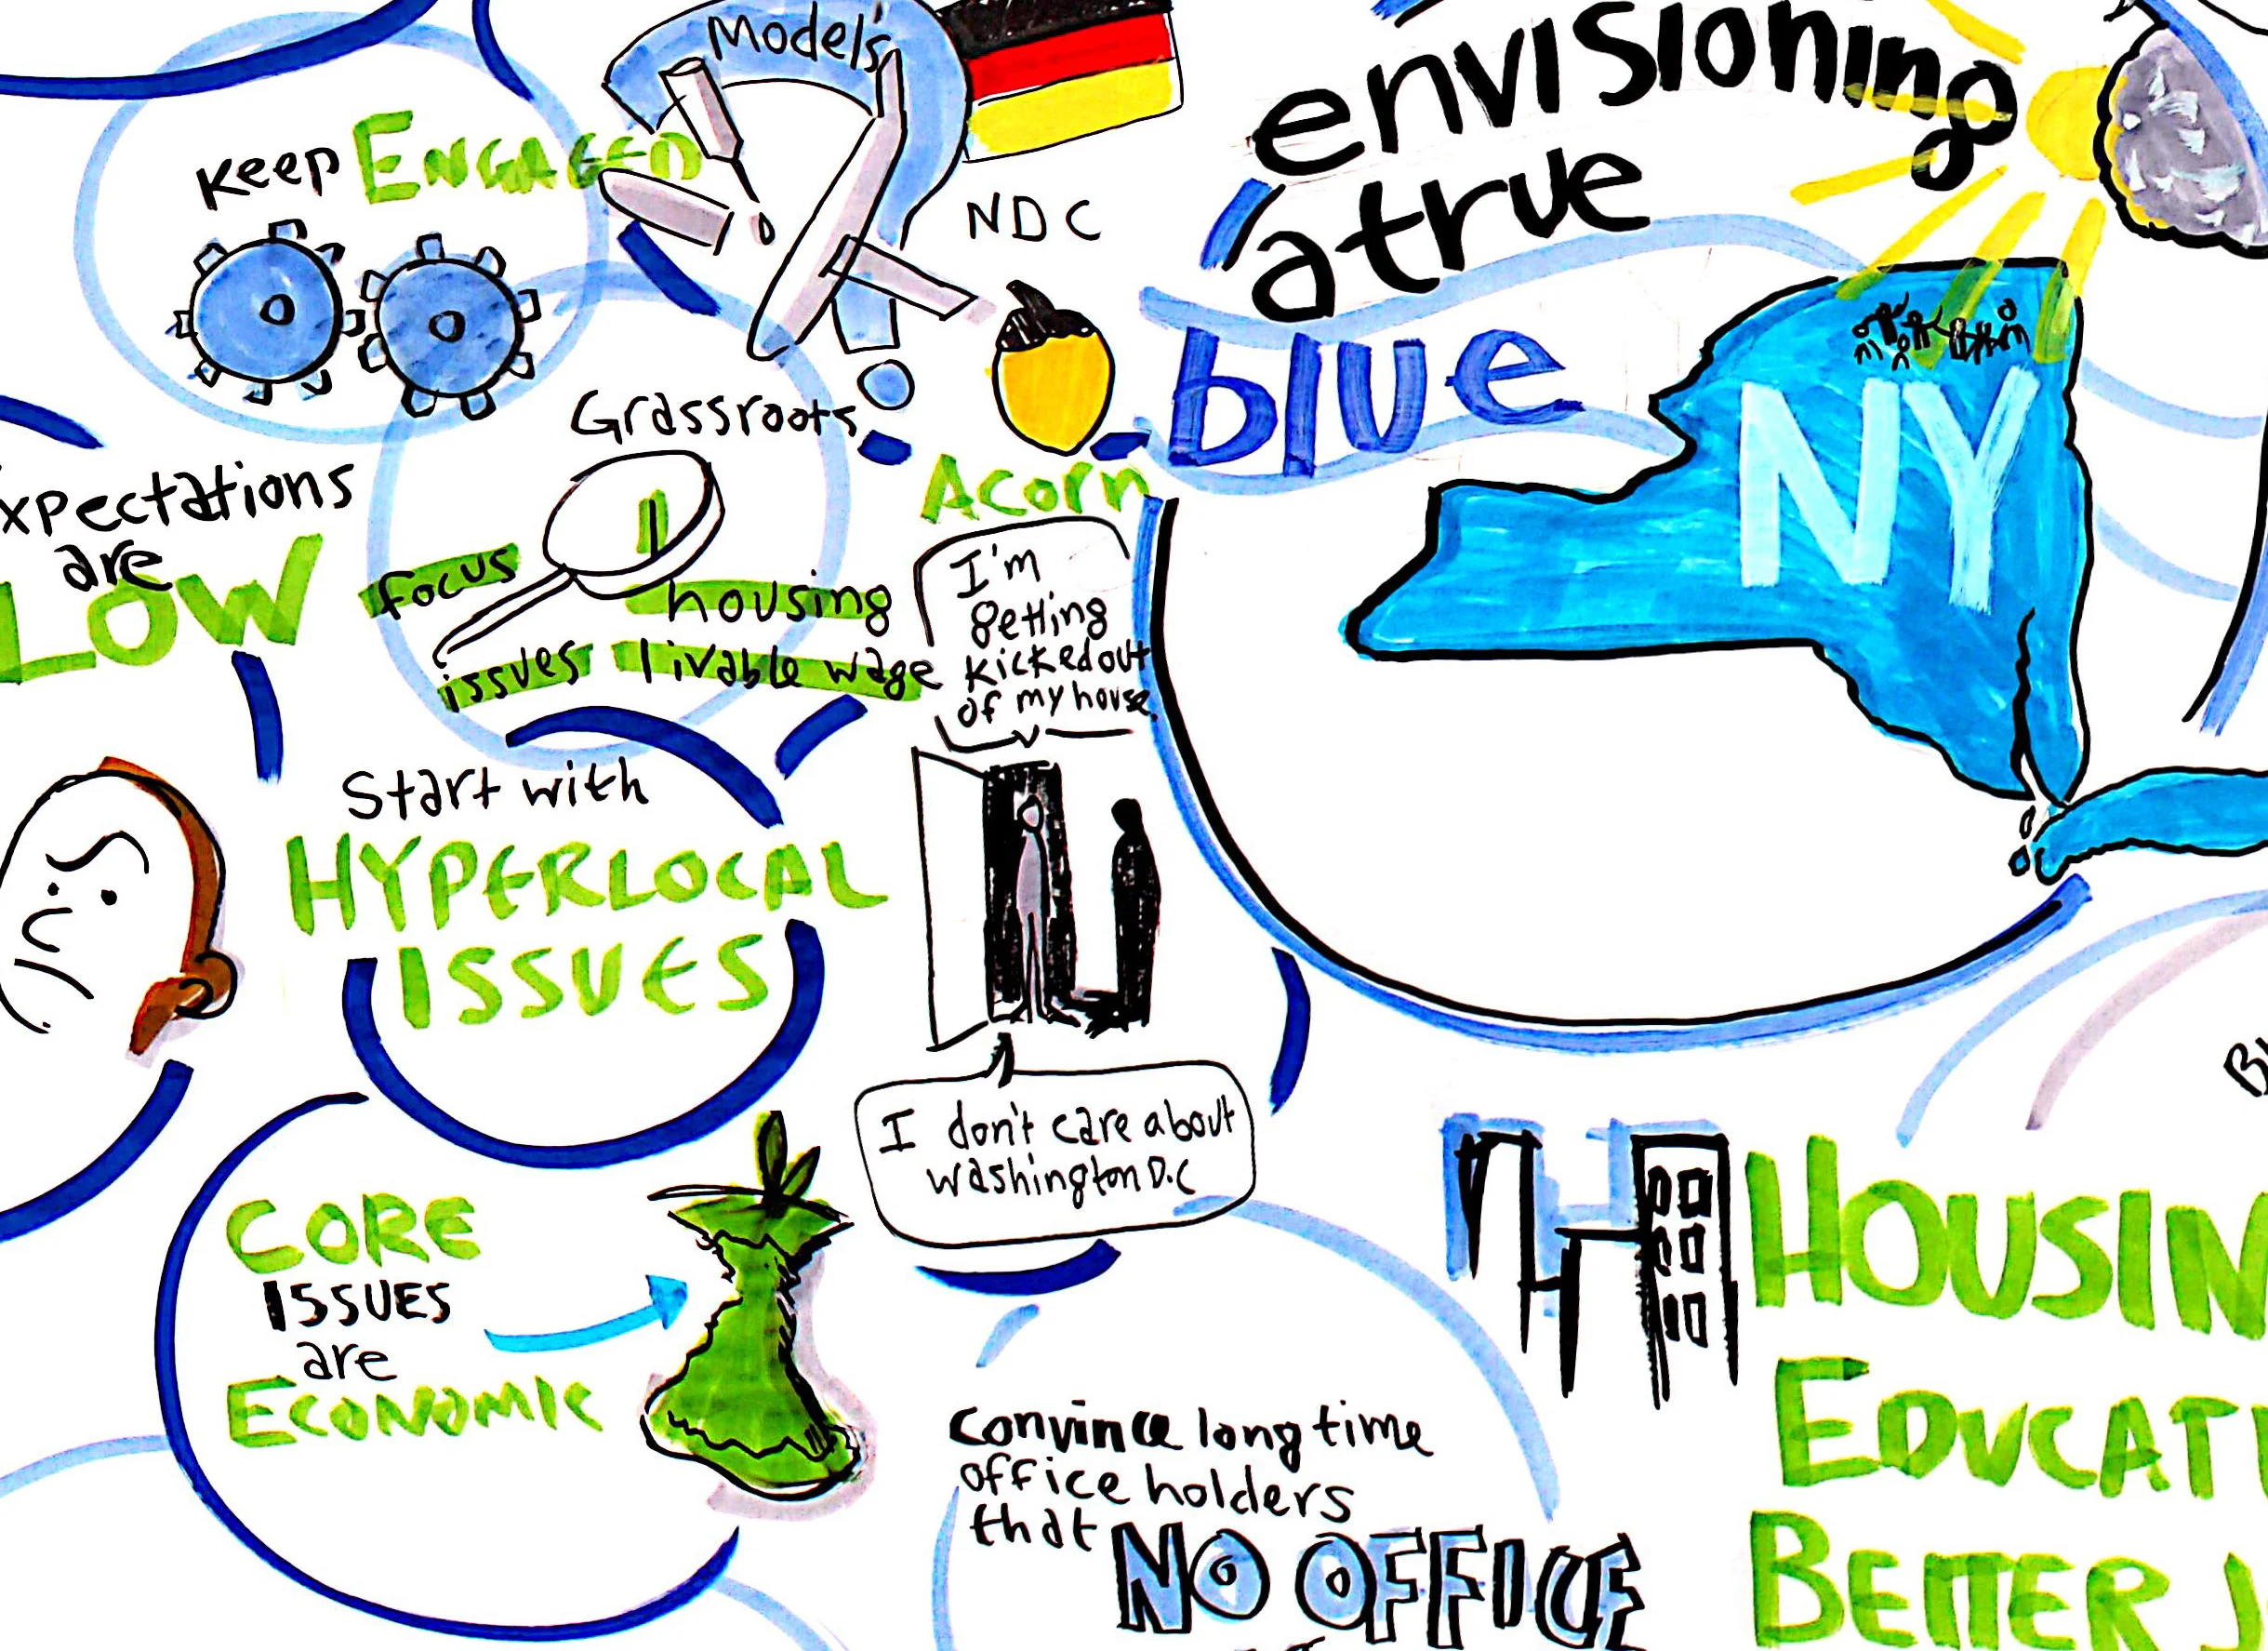 Models
Keep ENGAGED
NDC
envisioning
a true
blue
NY
Grassroots
Acorn
xpectations
are
LOW
focus
housing
issues livable wage
I'm
getting
kicked out
of my house
Start with
HYPERLOCAL
ISSUES
I don't care about
Washington D.C
CORE
ISSUES
are
ECONOMIC
convince long time
office holders
that NO OFFICE
HOUSIN
EDUCAT
BETTER J